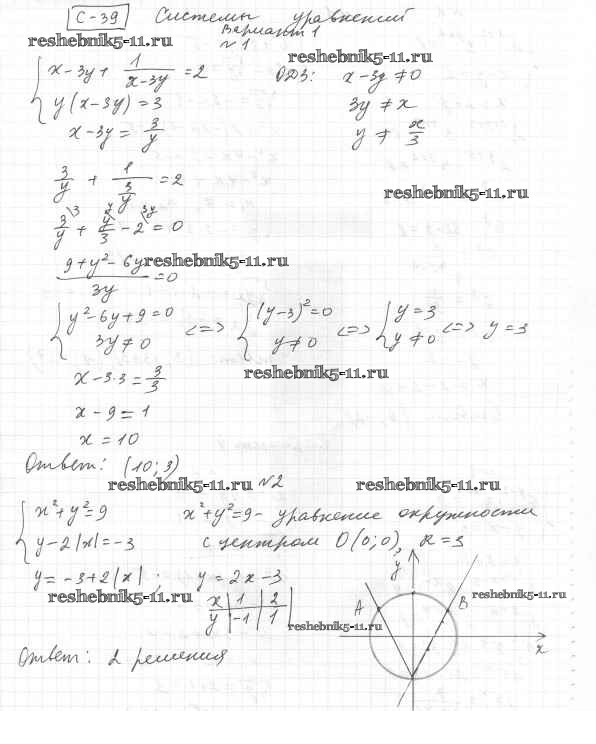 С-39 Системы уравнений
Вариант 1
reshebnik5-11.ru
№1
reshebnik5-11.ru
{ x-3y + 1/(x-3y) = 2
ОДЗ: x-3y ≠ 0
{ y(x-3y) = 3
3y ≠ x
x-3y = 3/y
y ≠ x/3
3/y + 1/(3/y) = 2
reshebnik5-11.ru
3/y \3 + y/3 \y - 2 \3y = 0
(9+y²-6y)/3y = 0
reshebnik5-11.ru
{ y²-6y+9=0 <=> { (y-3)²=0 <=> { y=3 <=> y=3
{ 3y≠0 { y≠0 { y≠0
reshebnik5-11.ru
x-3·3 = 3/3
x-9 = 1
x = 10
Ответ: (10; 3)
reshebnik5-11.ru
№2
reshebnik5-11.ru
{ x²+y²=9
x²+y²=9 - уравнение окружности
{ y-2|x|=-3
с центром O(0;0), R=3
y = -3+2|x|; y = 2x-3
reshebnik5-11.ru
x | 1 | 2
y | -1 | 1
reshebnik5-11.ru
reshebnik5-11.ru
y
A
B
x
Ответ: 2 решения